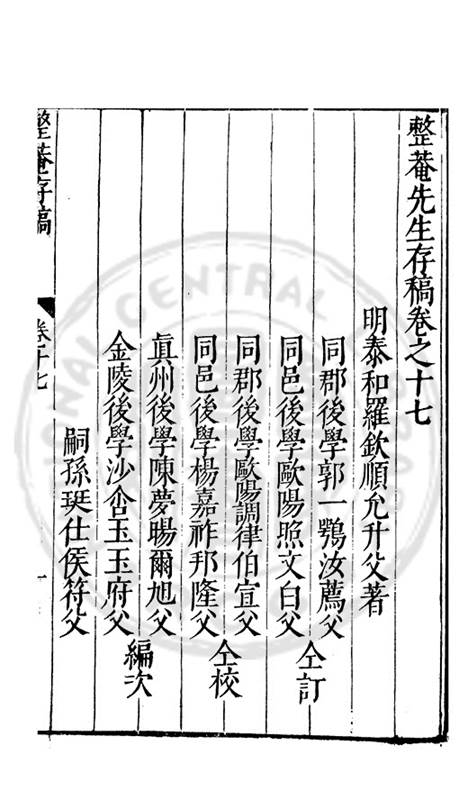 整菴先生存稿卷之十七
明泰和羅欽順允升父著
同郡後學郭一鶚汝薦父
同邑後學歐陽照文白父
仝訂
同郡後學歐陽調律伯宣父
同邑後學楊嘉祚邦隆父
仝校
真州後學陳夢暘爾旭父
金陵後學沙舎玉玉府父
編次
嗣孫珽仕侯符父
整菴存稿
卷十七
一
NATIONAL CENTRAL